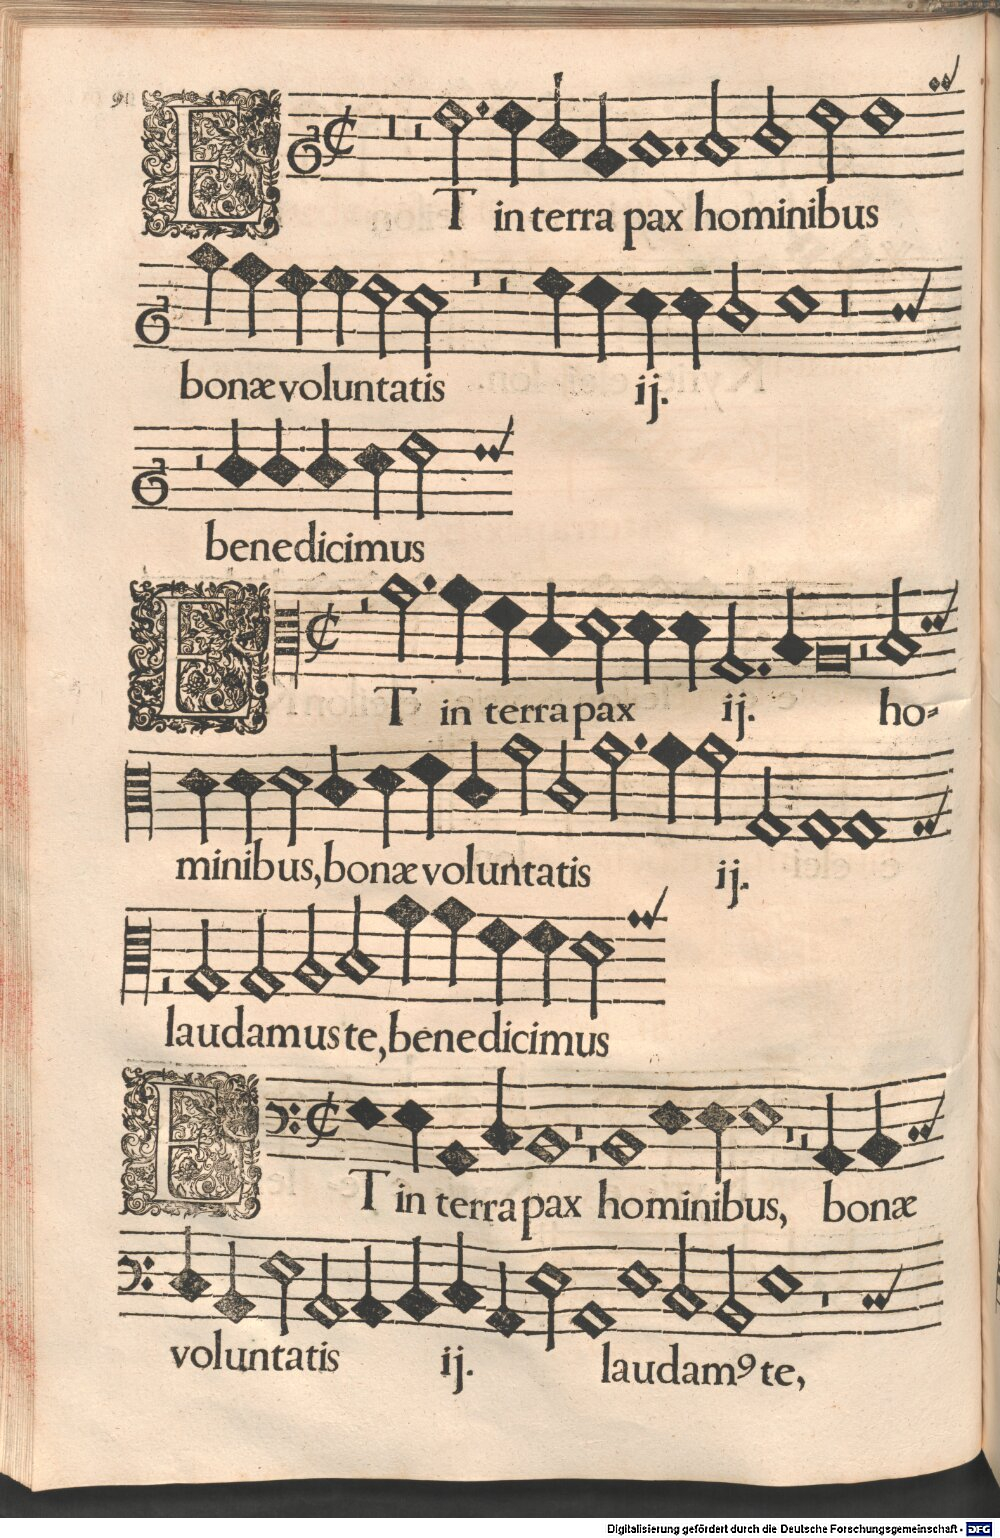 ET in terra pax hominibus
bonæ voluntatis ij.
benedicimus
ET in terra pax ij. ho-
minibus, bonæ voluntatis ij.
laudamus te, benedicimus
ET in terra pax hominibus, bonæ
voluntatis ij. laudamꝰ te,
Digitalisierung gefördert durch die Deutsche Forschungsgemeinschaft - DFG